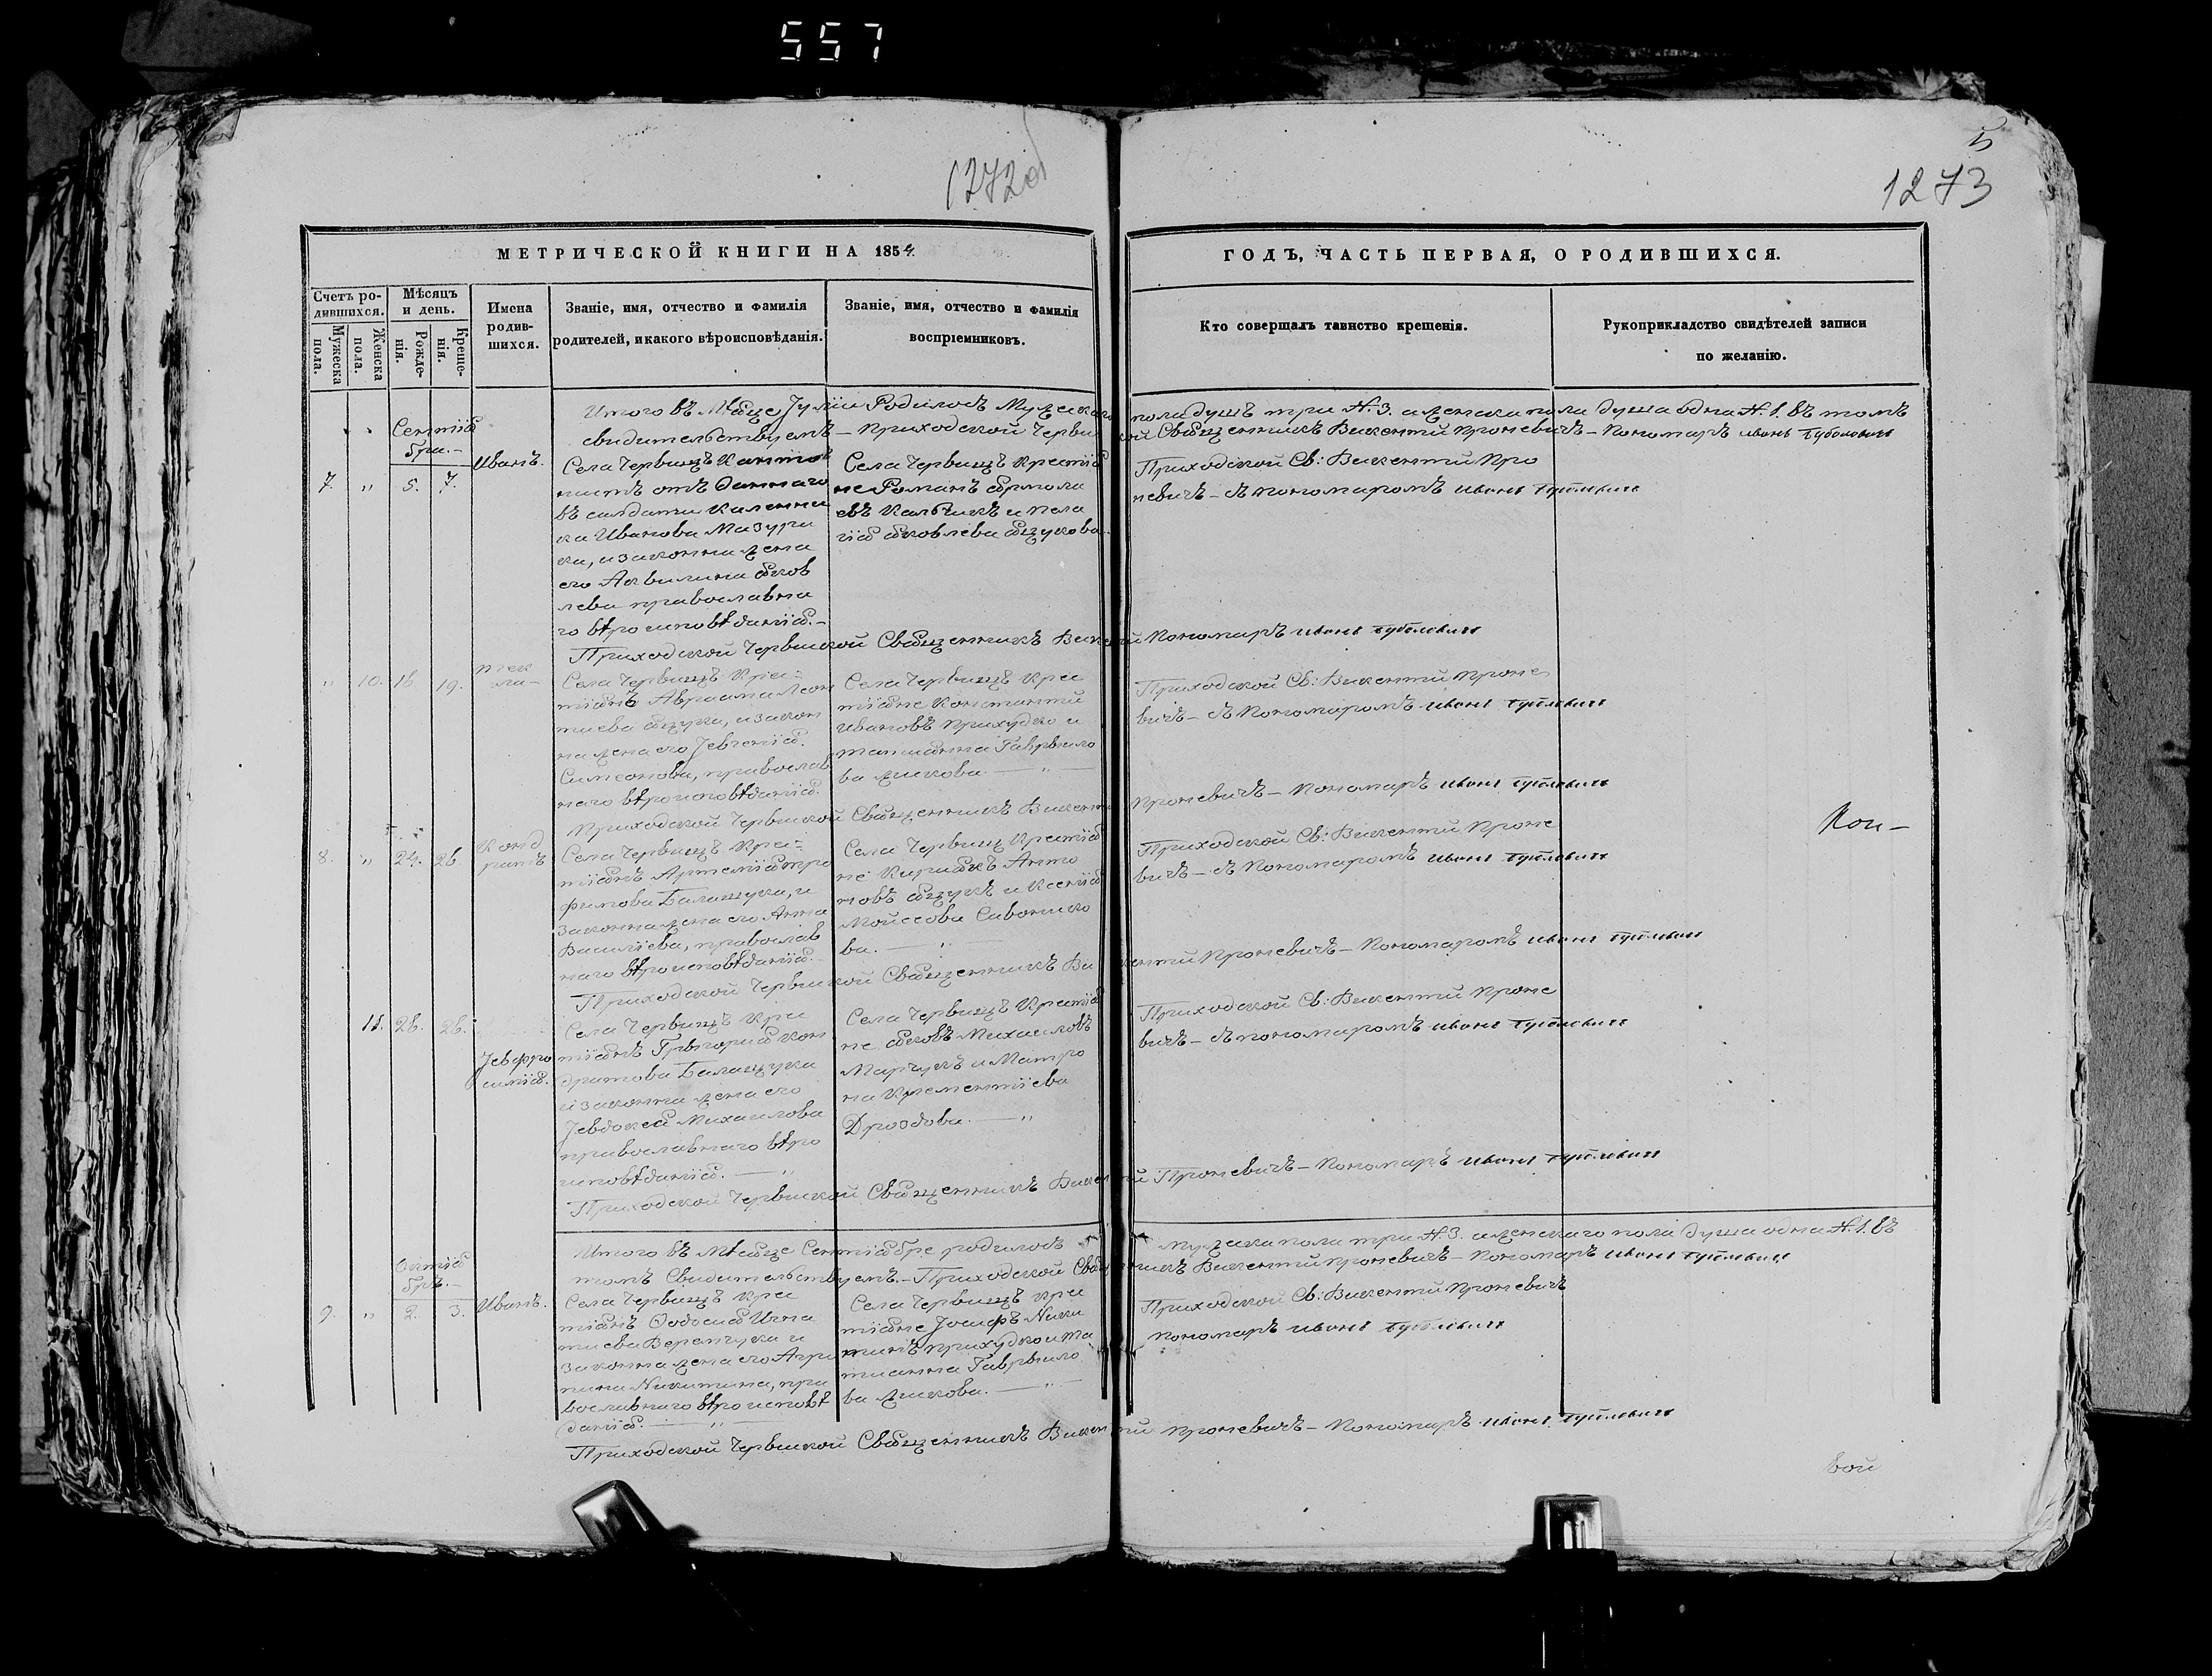 557
1272об
5
1273
МЕТРИЧЕСКОЙ КНИГИ НА 1854
ГОДЪ, ЧАСТЬ ПЕРВАЯ, О РОДИВШИХСЯ.
Счетъ ро-
дившихся.
Мужеска
пола.
Женска
пола.
Мѣсяцъ
и день.
Рожде-
нія.
Креще-
нія.
Имена
родив-
шихся.
Званіе, имя, отчество и фамилія
родителей, и какого вѣроисповѣданія.
Званіе, имя, отчество и фамилія
воспріемниковъ.
Кто совершалъ таинство крещенія.
Рукоприкладство свидѣтелей записи
по желанію.
Итого въ Мѣсяце Іулiи Родилось Мужеска пола душъ три №. 3. а женска пола душа одна №. 1. въ томъ
свидительствуемъ – Приходской Червиской Священникъ Викентий Проневичъ – Пономаръ
Сентя
бра. –
7. „ 5. 7.
Иванъ.
Села Червищъ Канто
нистъ отъ данаго
въ салдати Каленни
ка Иванова Мазури
ка, и законна жена
его Аквилина Яков
лева православна
го вѣроисповѣданія. –
Села Червищъ Крестия
не Романъ Ярмола
евъ Кальчикъ и Пела
гія Яковлева Ящукова.
Приходской Св: Викентий Про
невичъ – Съ пономаромъ
Приходской Червиской Священникъ Викентий Пономаръ
„ 10. 18. 19.
Тек
ля –
Села Червищъ Крес-
тіянъ Авраама Леон
тиева Ящука, и закон
на жена его Іевгенія
Симеонова, православ
наго вѣроисповѣданія.
Села Червищъ Крес
тіяне Константій
Ивановъ Прихудко и
Татиянна Гаврыило
ва Жшкова. – „ –
Приходской Св: Викентий Проне
вичъ – Съ Пономаромъ
Приходской Червиской Священникъ Викентий Проневичъ – Пономаръ
8. „ 24. 26.
Конд
ратъ
Села Червищъ Крес-
тіянъ Артемія Тро
фимова Балащука, и
законна жена его Анна
Василіева, православ
наго вѣроисповѣданія. –
Села Червищъ Крестия
не Кирыякъ Анто
новъ Ящукъ и Ксения
Мойсеова Савонико
ва. – „
Приходской Св: Викентий Проне
вичъ – Съ Пономаромъ
Кон –
Приходской Червиской Священникъ Викентий Проневичъ – Пономаромъ
11. 26. 26.
Іевфро
синія.
Села Червищъ Крес
тіянъ Грыгория Кон
дратова Балащука
и законна жена его
Іевдокея Михаилова
православнаго вѣро
исповѣданія. – „
Села Червищъ Крестия
не Яковъ Михаиловъ
Марчукъ и Матро
на Крементіева
Дроздова. – „
Приходской Св: Викентий Проне
вичъ – Съ пономаромъ
Приходской Червиской Священникъ Викентий Проневичъ – Пономаръ
Итого въ Мѣсяце Сентябре родилось мужеска пола три №. 3. а женскаго пола душа одна №. 1. въ
томъ Свидительствуемъ. – Приходской Священникъ Викентий Проневичъ – Пономаръ
Октя
бръ. –
9. „ 2. 3.
Иванъ.
Села Червищъ Крес
тіянъ Ѳодосия Игна
тиева Веремчука и
законна жена его Агри
пина Никитина, пра
вославнаго вѣроисповѣ
данія. – „ –
Села Червищъ Крес
тіяне Іосифъ Ники
тинъ Прихудко и Та
тианна Гаврыило
ва Жшкова. – „ –
Приходской Св: Викентий Проневичъ
Пономаръ
Приходской Червиской Священникъ Викентий Проневичъ – Пономаръ
вой